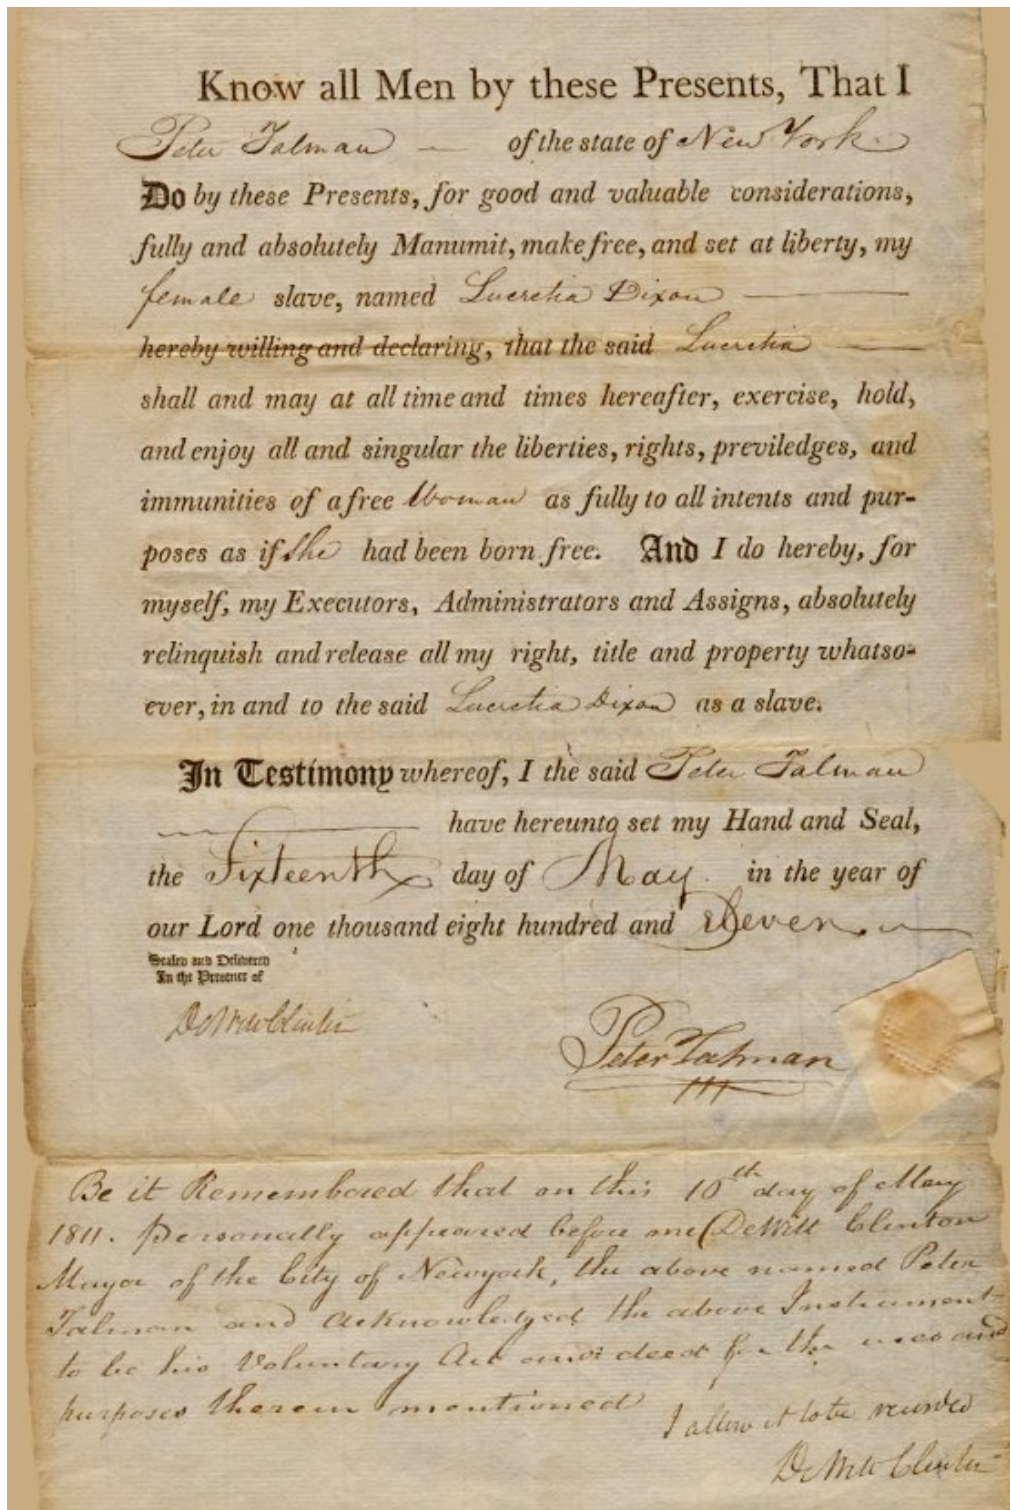 Know all Men by these Presents, That I
Peter Talman — of the state of New York
Do by these Presents, for good and valuable considerations,
fully and absolutely Manumit, make free, and set at liberty, my
female slave, named Lucretia Dixon —
hereby willing and declaring, that the said Lucretia —
shall and may at all time and times hereafter, exercise, hold,
and enjoy all and singular the liberties, rights, previledges, and
immunities of a free Woman as fully to all intents and pur-
poses as if She had been born free. And I do hereby, for
myself, my Executors, Administrators and Assigns, absolutely
relinquish and release all my right, title and property whatso-
ever, in and to the said Lucretia Dixon as a slave.
In Testimony whereof, I the said Peter Talman
— have hereunto set my Hand and Seal,
the Sixteenth day of May. in the year of
our Lord one thousand eight hundred and Eleven. —
Sealed and Delivered
In the Presence of
DeWitt Clinton
Peter Talman
Be it Remembered that on this 16th day of May
1811. Personally appeared before me (DeWitt Clinton
Mayor of the City of Newyork, the above named Peter
Talman and acknowledged the above Instrument
to be his Voluntary Act and deed for the uses and
purposes therein mentioned
I allow it to be recorded
DeWitt Clinton